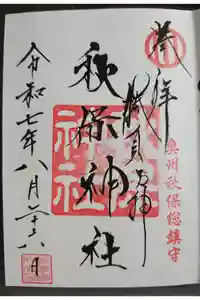 奉拝
奥州秋保総鎮守
勝負の神
秋保神社
令和七年八月二十六日